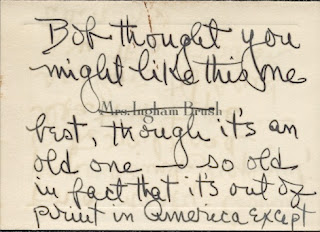 Bob thought you
might like this one
Mrs. Ingham Brush
best, though it's an
old one — so old
in fact that it's out of
print in America except